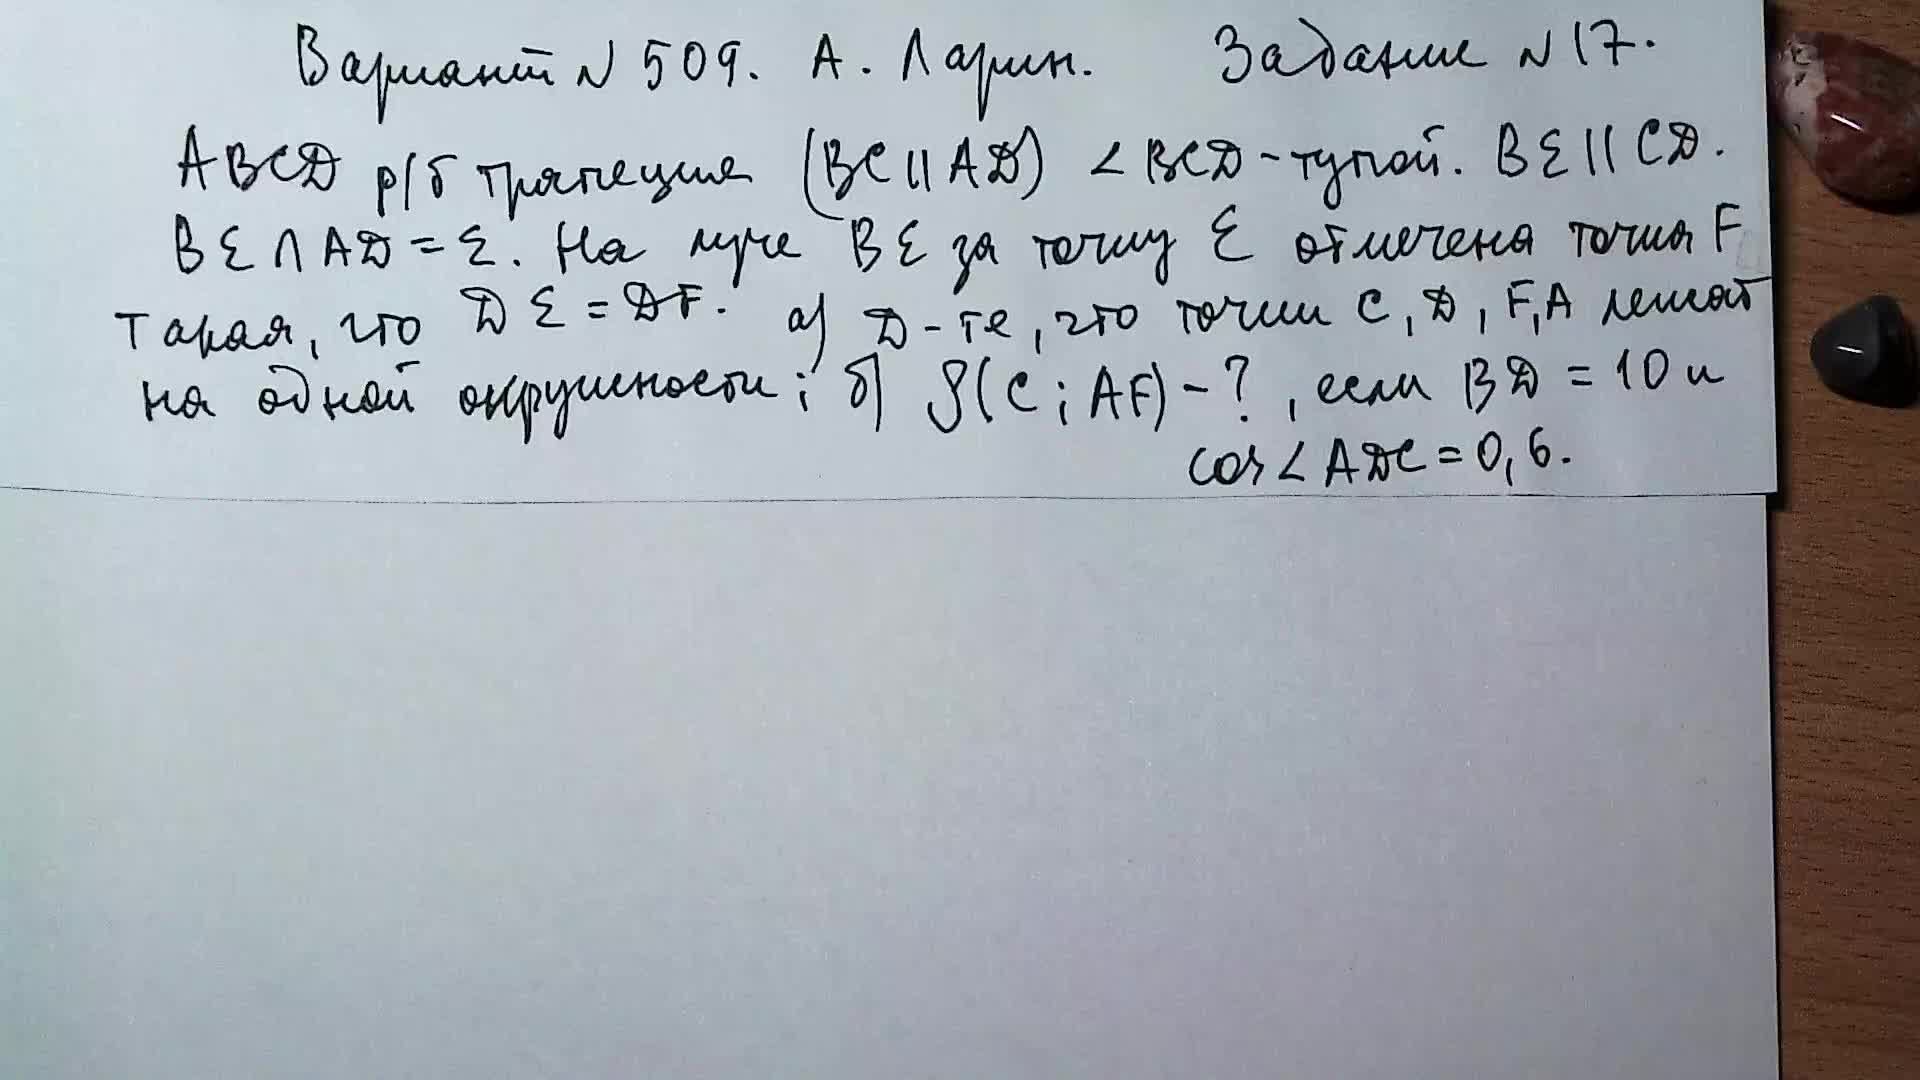 Вариант № 509. А. Ларин. Задание № 17.
ABCD р/б трапеция (BC || AD) ∠BCD - тупой. BE || CD.
BE ∩ AD = E. На луче BE за точку E отмечена точка F
такая, что DE = DF. а) D-те, что точки C, D, F, A лежат
на одной окружности; б) ρ(C; AF) - ?, если BD = 10 и
cos∠ADC = 0,6.